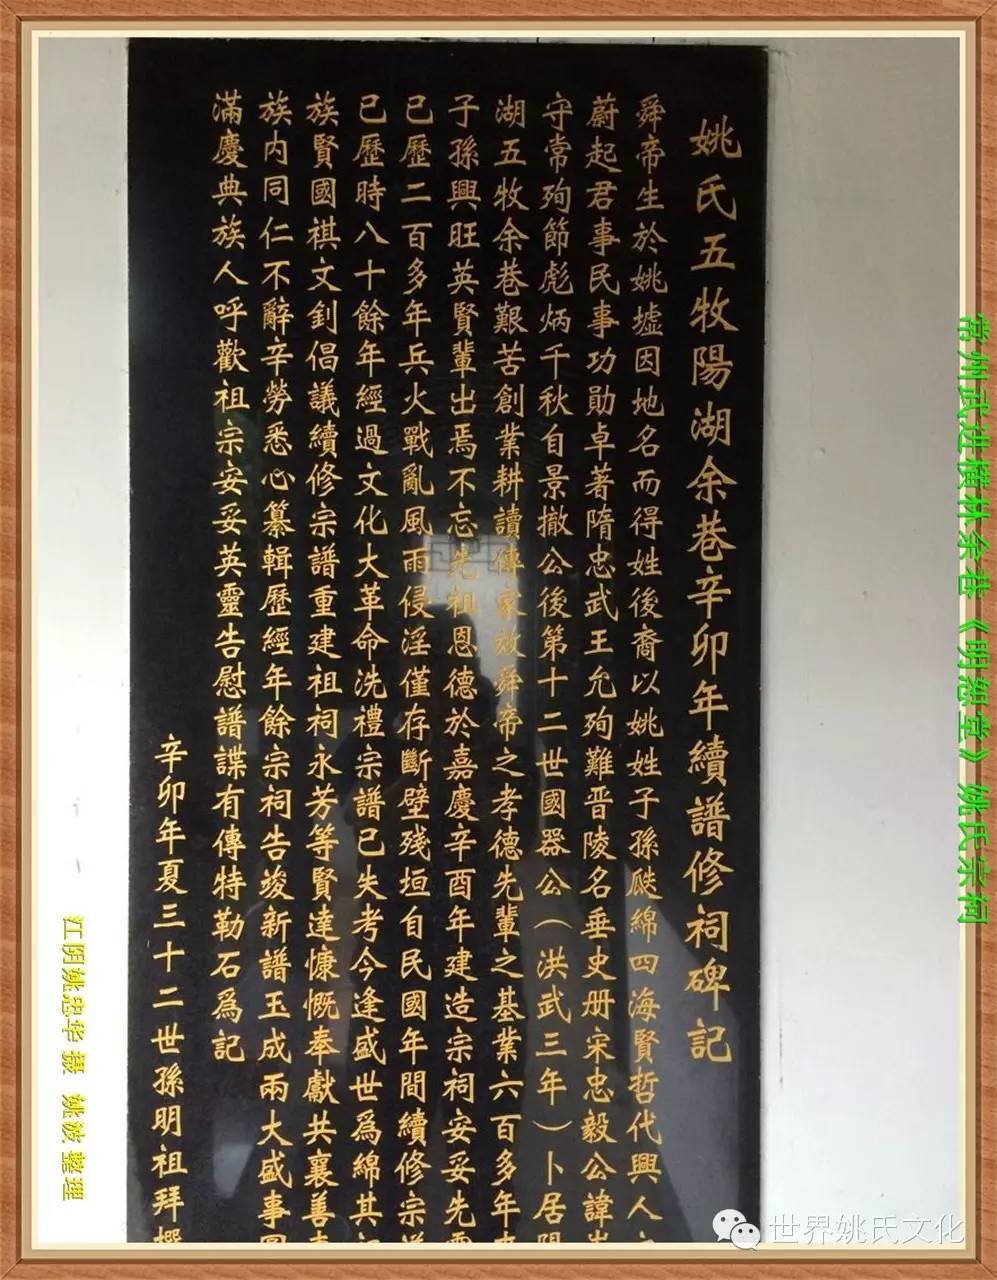 姚氏五牧陽湖余巷辛卯年續譜修祠碑記
舜帝生於姚墟因地名而得姓後裔以姚姓子孫瓞綿四海賢哲代興人
蔚起君事民事功勛卓著隋忠武王允殉難晋陵名垂史册宋忠毅公諱
守常殉節彪炳千秋自景撤公後第十二世國器公（洪武三年）卜居陽
湖五牧余巷艱苦創業耕讀傳家放舜帝之孝德先輩之基業六百多年來
子孫興旺英賢輩出焉不忘先祖恩德於嘉慶辛酉年建造宗祠安妥先
已歷二百多年兵火戰亂風雨侵淫僅存斷壁残垣自民國年間續修宗
已歷時八十餘年經過文化大革命洗禮宗譜已失考今逢盛世爲綿其
族賢國祺文釗倡議續修宗譜重建祖祠永芳等賢達慷慨奉獻共襄善
族内同仁不辭辛勞悉心纂輯歷經年餘宗祠告竣新譜玉成兩大盛事
滿慶典族人呼歡祖宗安妥英靈告慰譜諜有傳特勒石爲記
辛卯年夏三十二世孫明祖拜撰
常州武进横林余巷《明恕堂》姚氏宗祠
江阴姚忠华 摄 姚 整理
世界姚氏文化